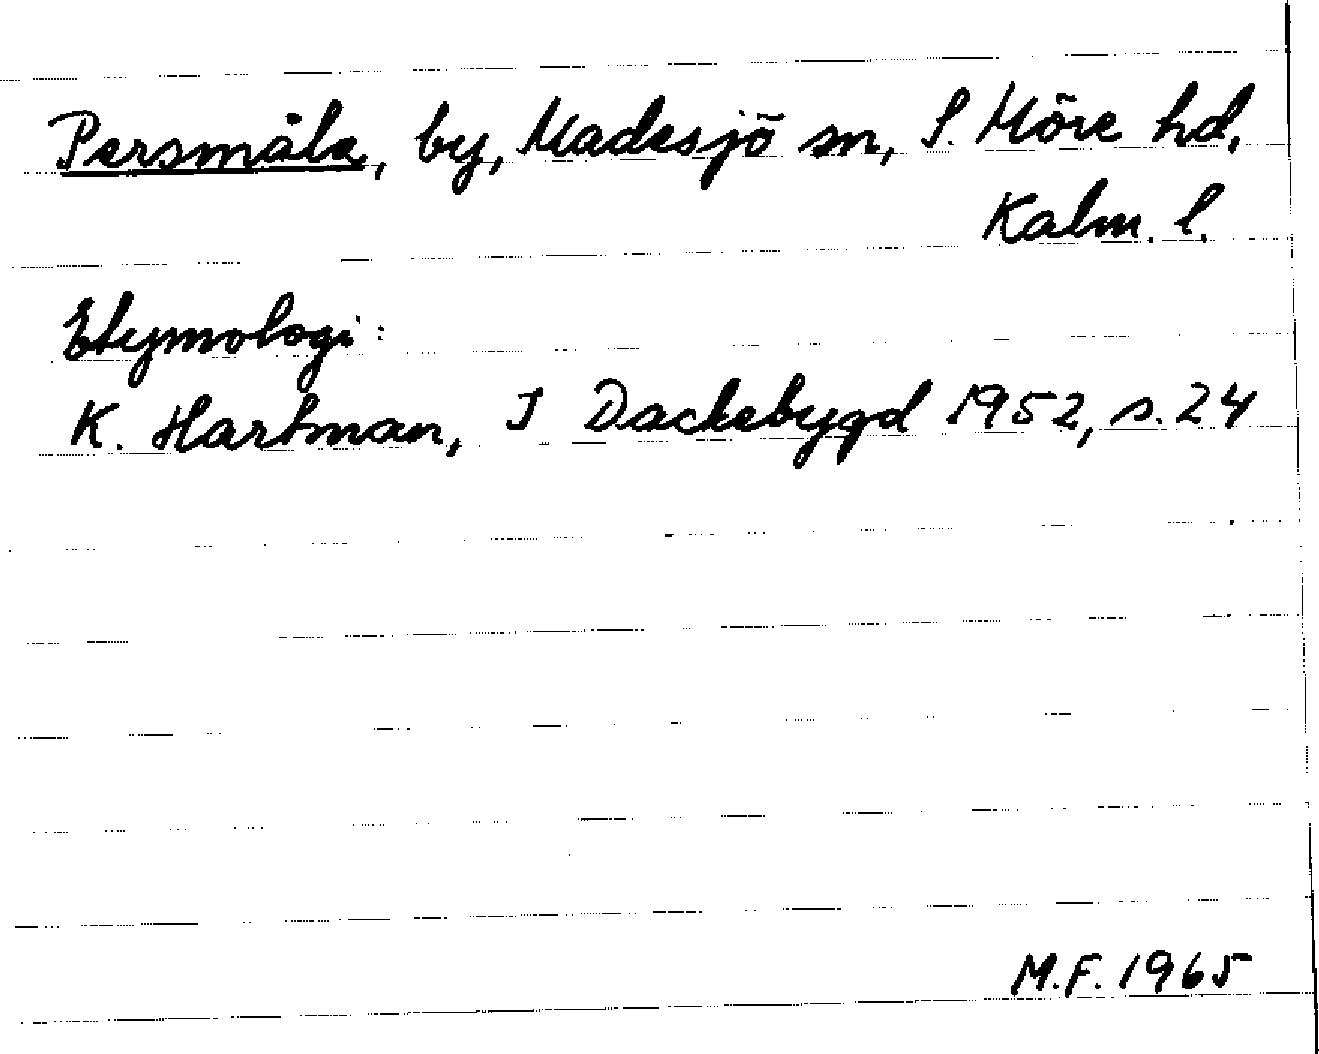 Persmåla, by, Madesjö sn, S. Möre hd,
Kalm. l.
Etymologi:
K. Hartman, I Dackebygd 1952, s. 24
M.F. 1965